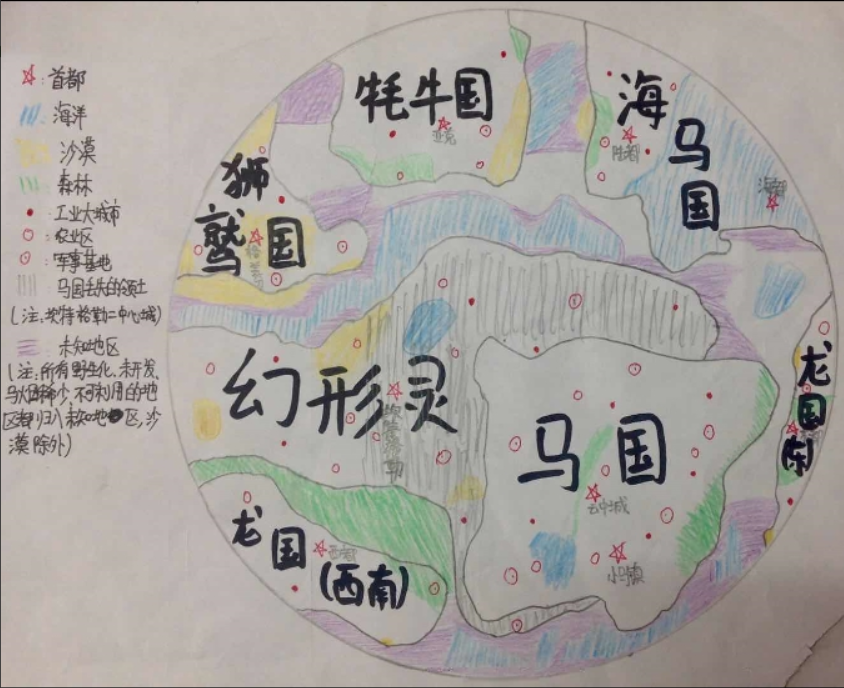 首都
海洋
沙漠
森林
工业大城市
农业区
军事基地
马国丢失的领土
(注:坎特 格勒=中心城)
未知地区
(注:所有野生化、未开发、
马烟稀少、不可利用的地
区都归入未知地区,沙
漠除外)
牦牛国
亚克
海
马
国
陆都
海都
狮
鹫
国
幻形灵
马国
云中城
小马镇
龙国
(西南)
西都
龙
国
东